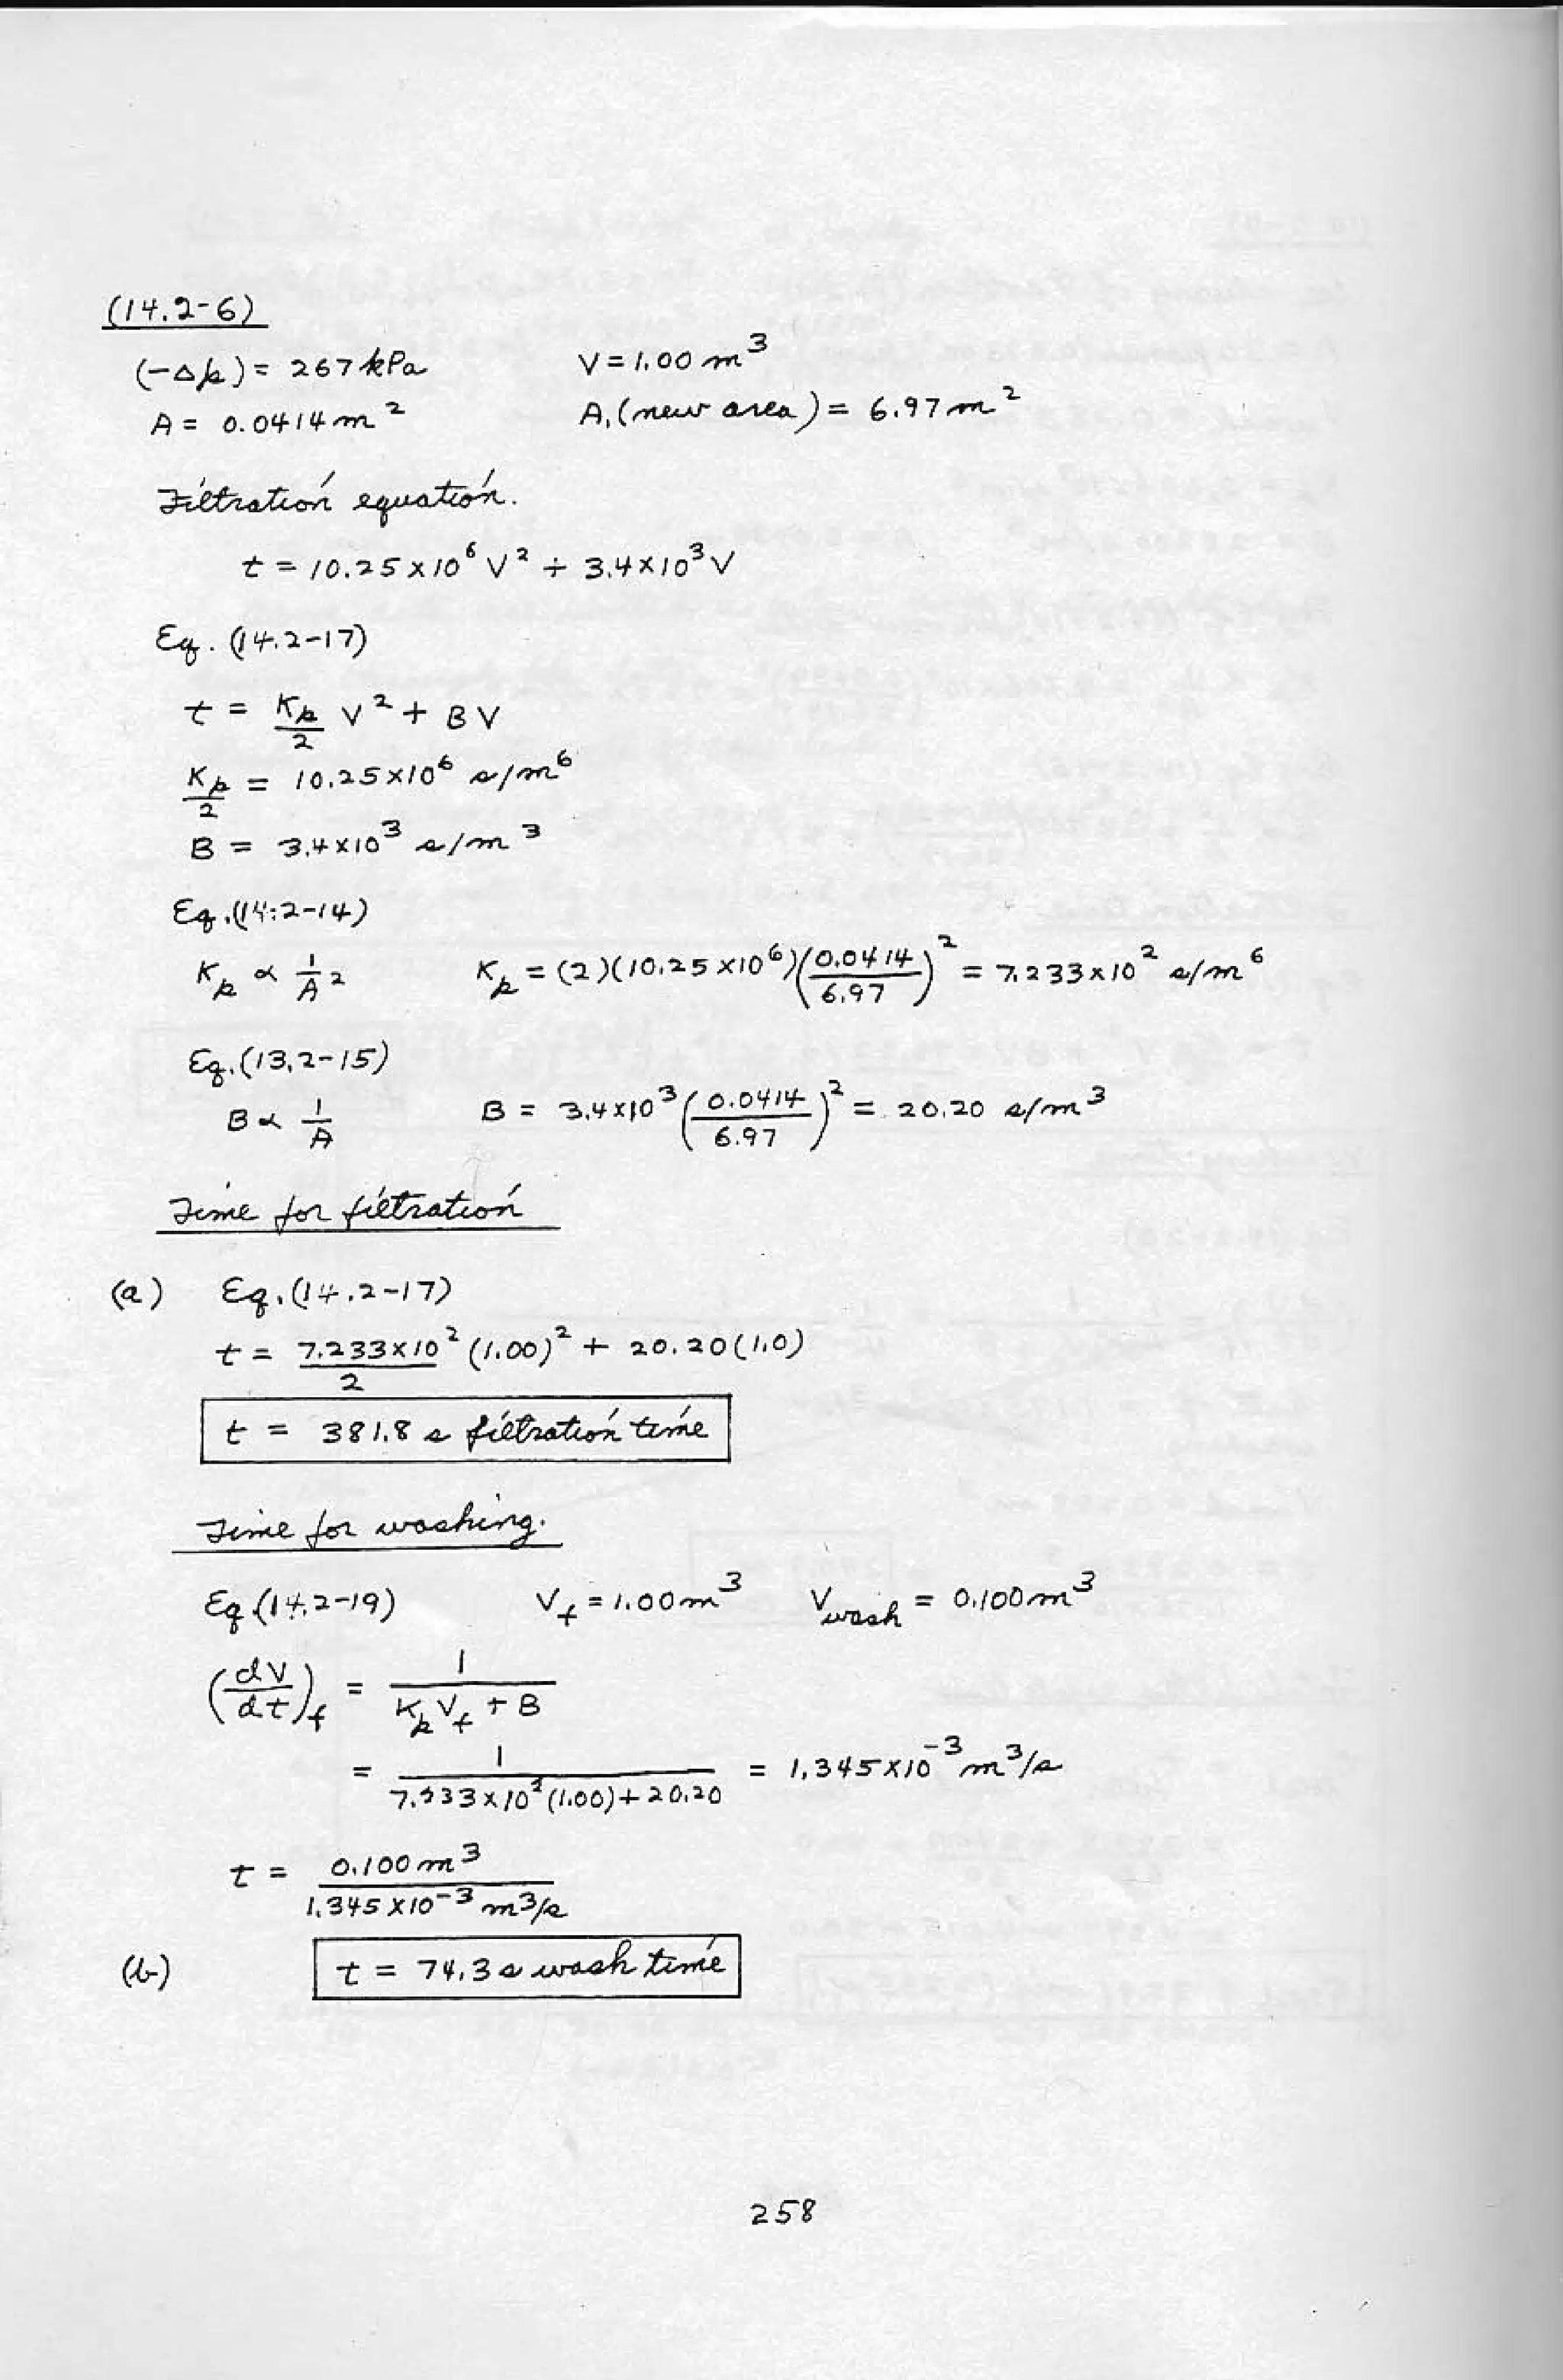 (14.2-6)
(-Δp) = 267 kPa V = 1.00 m³
A = 0.0414 m² A, (new area) = 6.97 m²
Filtration equation.
t = 10.25 x 10⁶ V² + 3.4 x 10³ V
Eq. (14.2-17)
t = Kp/2 V² + BV
Kp/2 = 10.25 x 10⁶ s/m⁶
B = 3.4 x 10³ s/m³
Eq. (14.2-14)
Kp ∝ 1/A² Kp = (2)(10.25 x 10⁶)(0.0414/6.97)² = 7.233 x 10² s/m⁶
Eq. (13.2-15)
B ∝ 1/A B = 3.4 x 10³ (0.0414/6.97)² = 20.20 s/m³
Time for filtration
(a) Eq. (14.2-17)
t = 7.233 x 10²/2 (1.00)² + 20.20 (1.0)
t = 381.8 s filtration time
Time for washing.
Eq. (14.2-19) Vf = 1.00 m³ Vwash = 0.100 m³
(dV/dt)f = 1/(Kp Vf + B)
= 1/(7.233 x 10² (1.00) + 20.20) = 1.345 x 10⁻³ m³/s
t = 0.100 m³/(1.345 x 10⁻³ m³/s)
(b) t = 74.3 s wash time
258